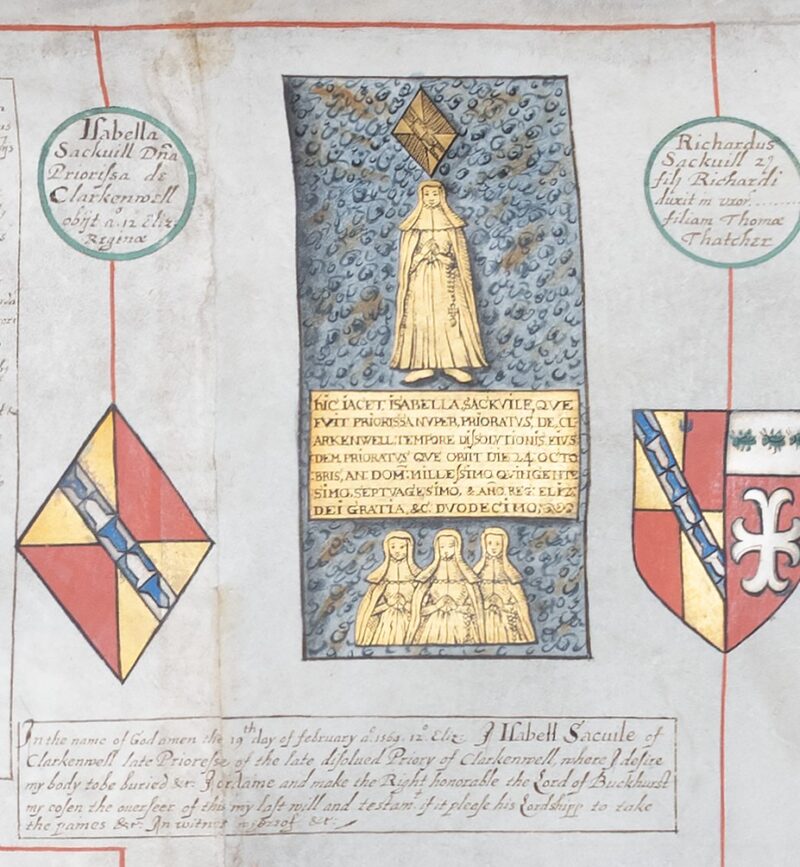 Isabella
Sackvill Dña
Priorissa de
Clarkenwell
obijt aº 12 Eliz
Reginæ
Richardus
Sackvill 2
filj Richardi
duxit in uxor........
filiam Thomæ
Thatcher
HIC IACET ISABELLA SACKVILE, QVE
FVIT PRIORISSA NVPER, PRIORATVS, DE, CL-
ARKENWELL, TEMPORE DISSOLVTIONIS EIVS-
DEM PRIORATVS QVE OBIIT DIE 24 OCTO-
BRIS, AN: DOM: MILLESSIMO QVINGENTE
SIMO, SEPTVAGESIMO, & ANO, REG: ELIZ:
DEI GRATIA, &C. DVODECIMO,
In the name of God amen the 19th day of february aº 1569. 12º Eliz: I Isabell Sacuile of
Clarkenwell late Prioresse of the late disolved Priory of Clarkenwell, where I desire
my body to be buried &c. I ordaine and make the Right honorable the Lord of Buckhurst
my cosen the overseer of this my last will and testamt if it please his Lordshipp to take
the paines &c. In witnes whereof &c.